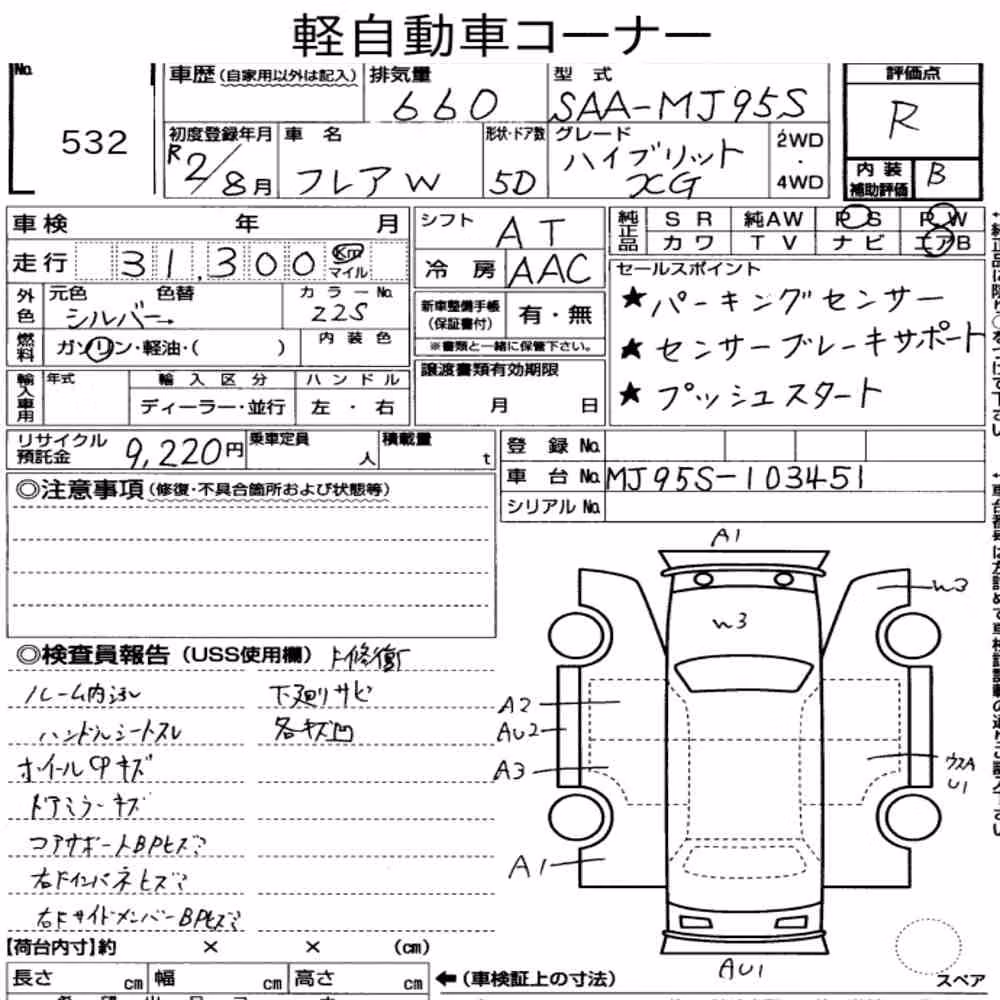 軽自動車コーナー
No. 532
車歴(自家用以外は記入) 排気量 660 型式 SAA-MJ95S
評価点 R
初度登録年月 R2/8月 車名 フレアW 形状・ドア数 5D グレード ハイブリット XG 2WD・4WD
内装補助評価 B
車検 年 月
シフト AT
純正品 SR 純AW PS PW
カワ TV ナビ エアB
走行 31,300 km マイル
冷房 AAC
セールスポイント
★パーキングセンサー
★センサーブレーキサポート
★プッシュスタート
外色 元色 シルバー→ 色替 カラーNo. Z2S
新車整備手帳(保証書付) 有・無
※書類と一緒に保管下さい。
燃料 ガソリン・軽油・( ) 内装色
輸入車用 年式 輸入区分 ハンドル
ディーラー・並行 左・右
譲渡書類有効期限
月 日
リサイクル預託金 9,220円 乗車定員 人 積載量 t
登録No.
車台No. MJ95S-103451
シリアルNo.
◎注意事項(修復・不具合箇所および状態等)
◎検査員報告(USS使用欄)
ルーム内
ハンドルシートスレ
ホイールCPキズ
ドアミラーキズ
コアサポートBPヒズミ
右Fインパネヒズミ
右FサイドメンバーBPヒズミ
下廻りサビ
各キズ凹
A1
W3
W3
A2
AU2
A3
ウスA
U1
A1
AU1
スペア
【荷台内寸】約 × × (cm)
長さ cm 幅 cm 高さ cm
←(車検証上の寸法)